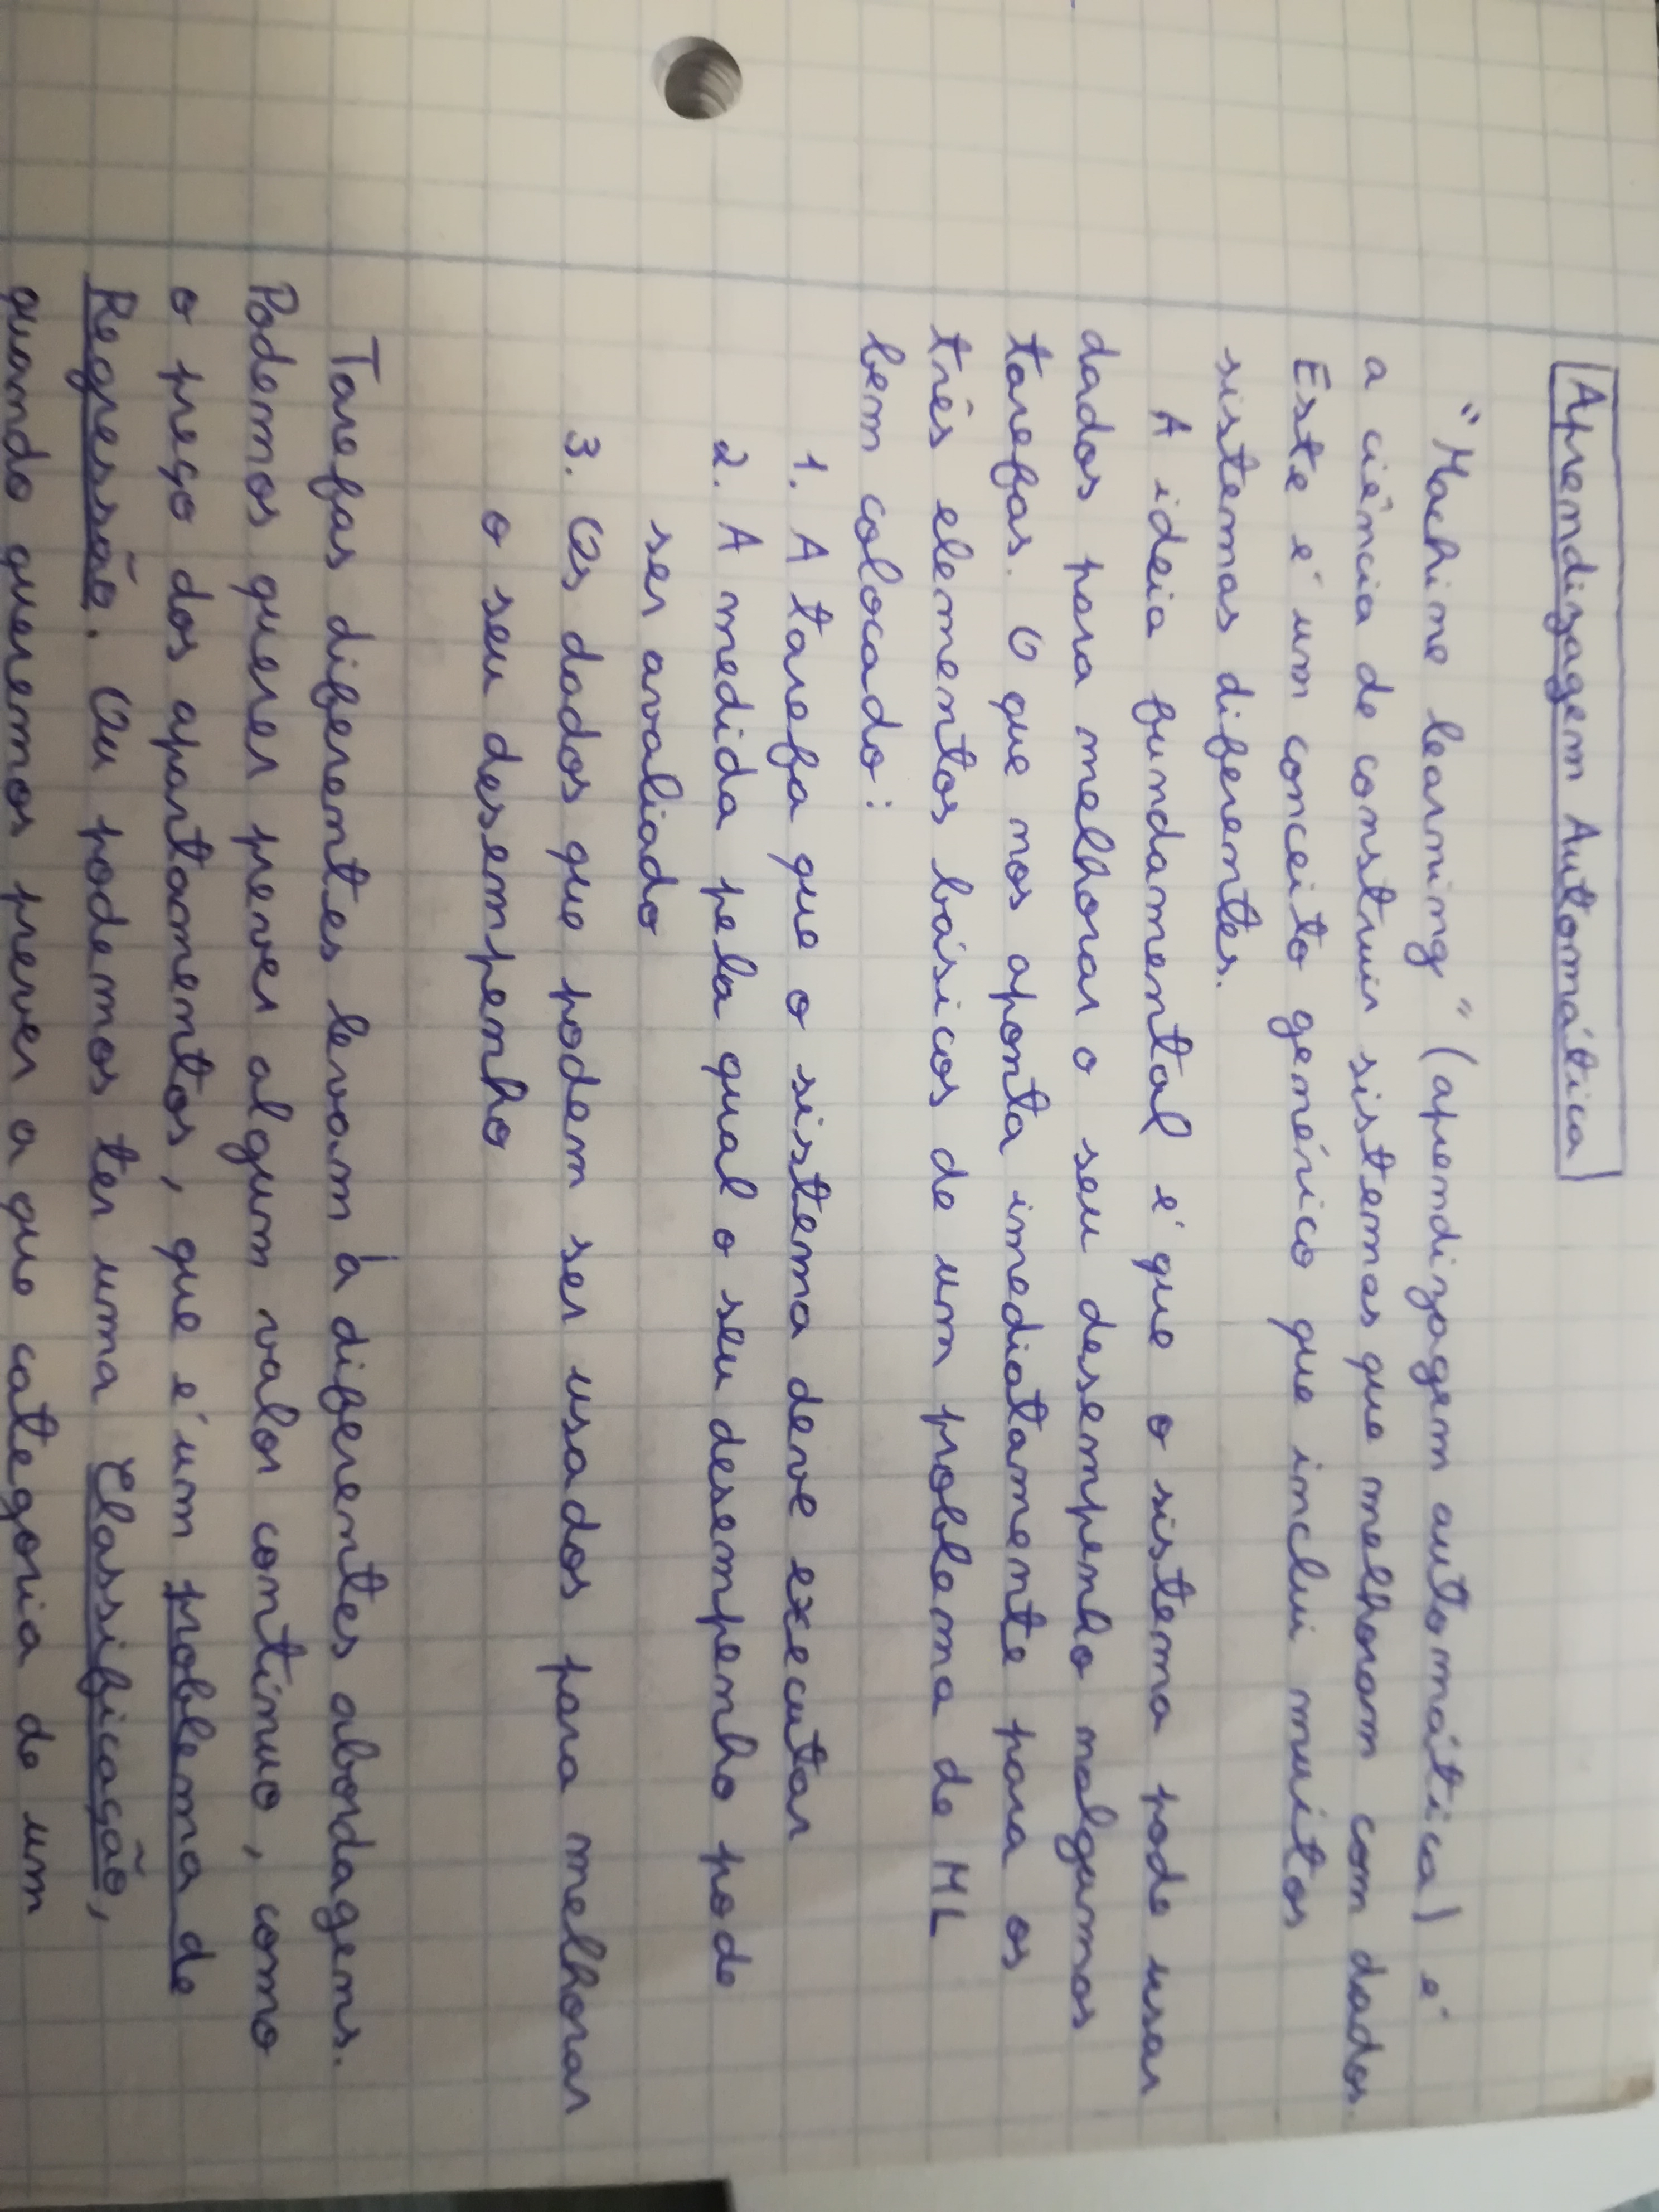 Aprendizagem Automática
"Machine learning" (aprendizagem automática) é
a ciência de construir sistemas que melhoram com dados.
Este é um conceito genérico que inclui muitos
sistemas diferentes.
A ideia fundamental é que o sistema pode usar
dados para melhorar o seu desempenho nalgumas
tarefas. O que nos aponta imediatamente para os
três elementos básicos de um problema de ML
bem colocado:
1. A tarefa que o sistema deve executar
2. A medida pela qual o seu desempenho pode
ser avaliado
3. Os dados que podem ser usados para melhorar
o seu desempenho
Tarefas diferentes levam à diferentes abordagens.
Podemos querer prever algum valor contínuo, como
o preço dos apartamentos, que é um problema de
Regressão. Ou podemos ter uma Classificação,
quando queremos prever a que categoria de um